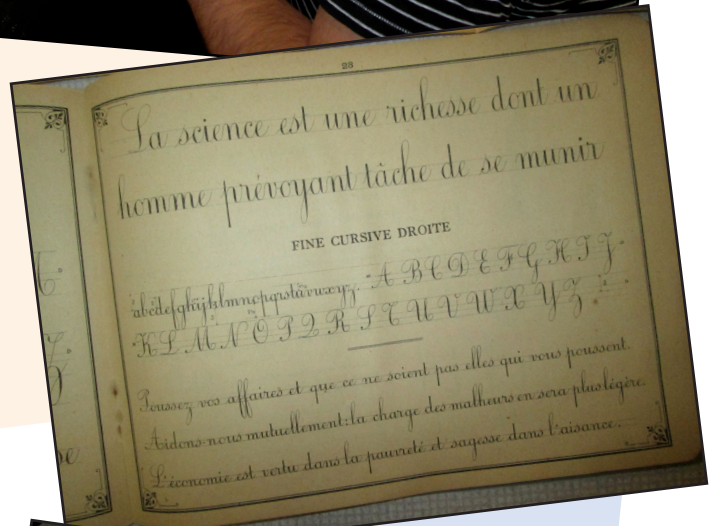 23
La science est une richesse dont un
homme prévoyant tâche de se munir
FINE CURSIVE DROITE
abcdefghijklmnopqrstuvwxyz. A B C D E F G H I J.
K L M N O P Q R S T U V W X Y Z
Poussez vos affaires et que ce ne soient pas elles qui vous poussent.
Aidons-nous mutuellement: la charge des malheurs en sera plus légère.
L'économie est vertu dans la pauvreté et sagesse dans l'aisance.